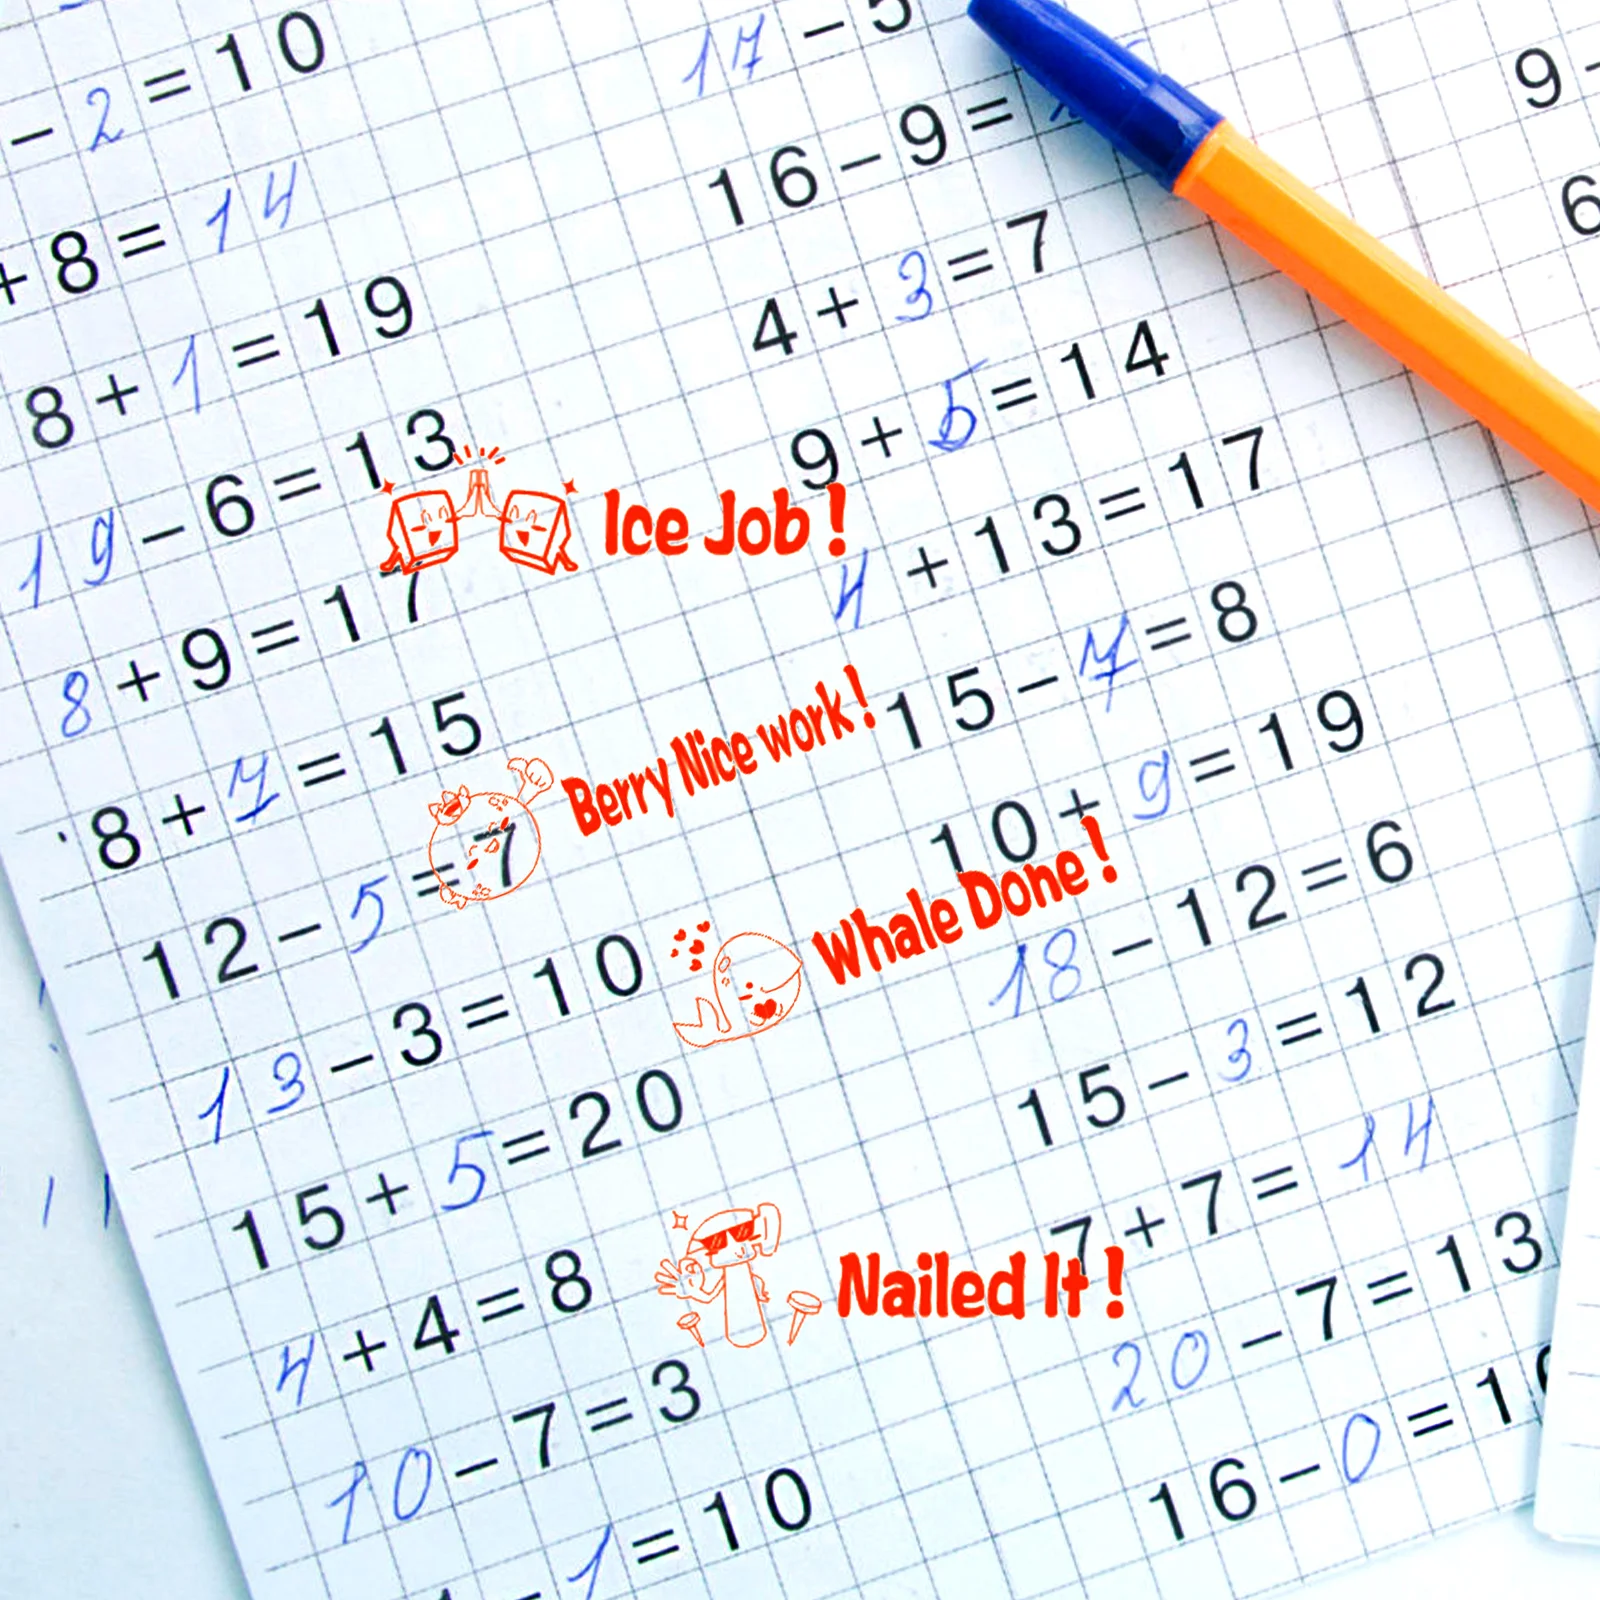 - 2 = 10
+ 8 = 14
8 + 1 = 19
19 - 6 = 13
8 + 9 = 17
8 + 7 = 15
12 - 5 = 7
13 - 3 = 10
15 + 5 = 20
4 + 4 = 8
10 - 7 = 3
- 1 = 10
17 - 5
16 - 9 =
4 + 3 = 7
9 + 5 = 14
4 + 13 = 17
15 - 7 = 8
10 + 9 = 19
18 - 12 = 6
15 - 3 = 12
7 + 7 = 14
20 - 7 = 13
16 - 0 = 1
Ice Job!
Berry Nice work!
Whale Done!
Nailed It!
9
6